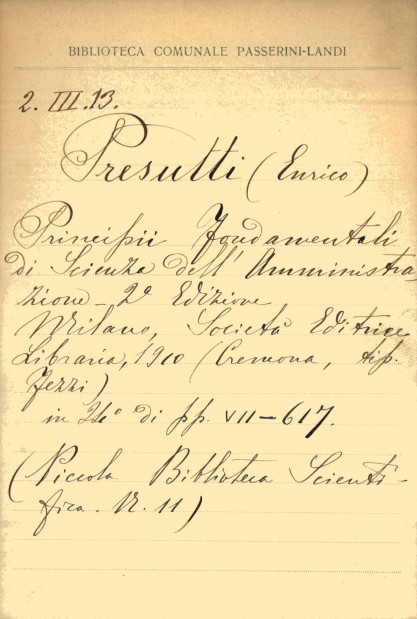 BIBLIOTECA COMUNALE PASSERINI-LANDI
2. III. 13.
Presutti (Enrico)
Principii Fondamentali
di Scienza dell'Amministra-
zione - 2ª Edizione
Milano, Società Editrice
Libraria, 1910 (Cremona, tip.
Fezzi)
in 24° di pp. VII-617.
(Piccola Biblioteca Scienti-
fica. N. 11)